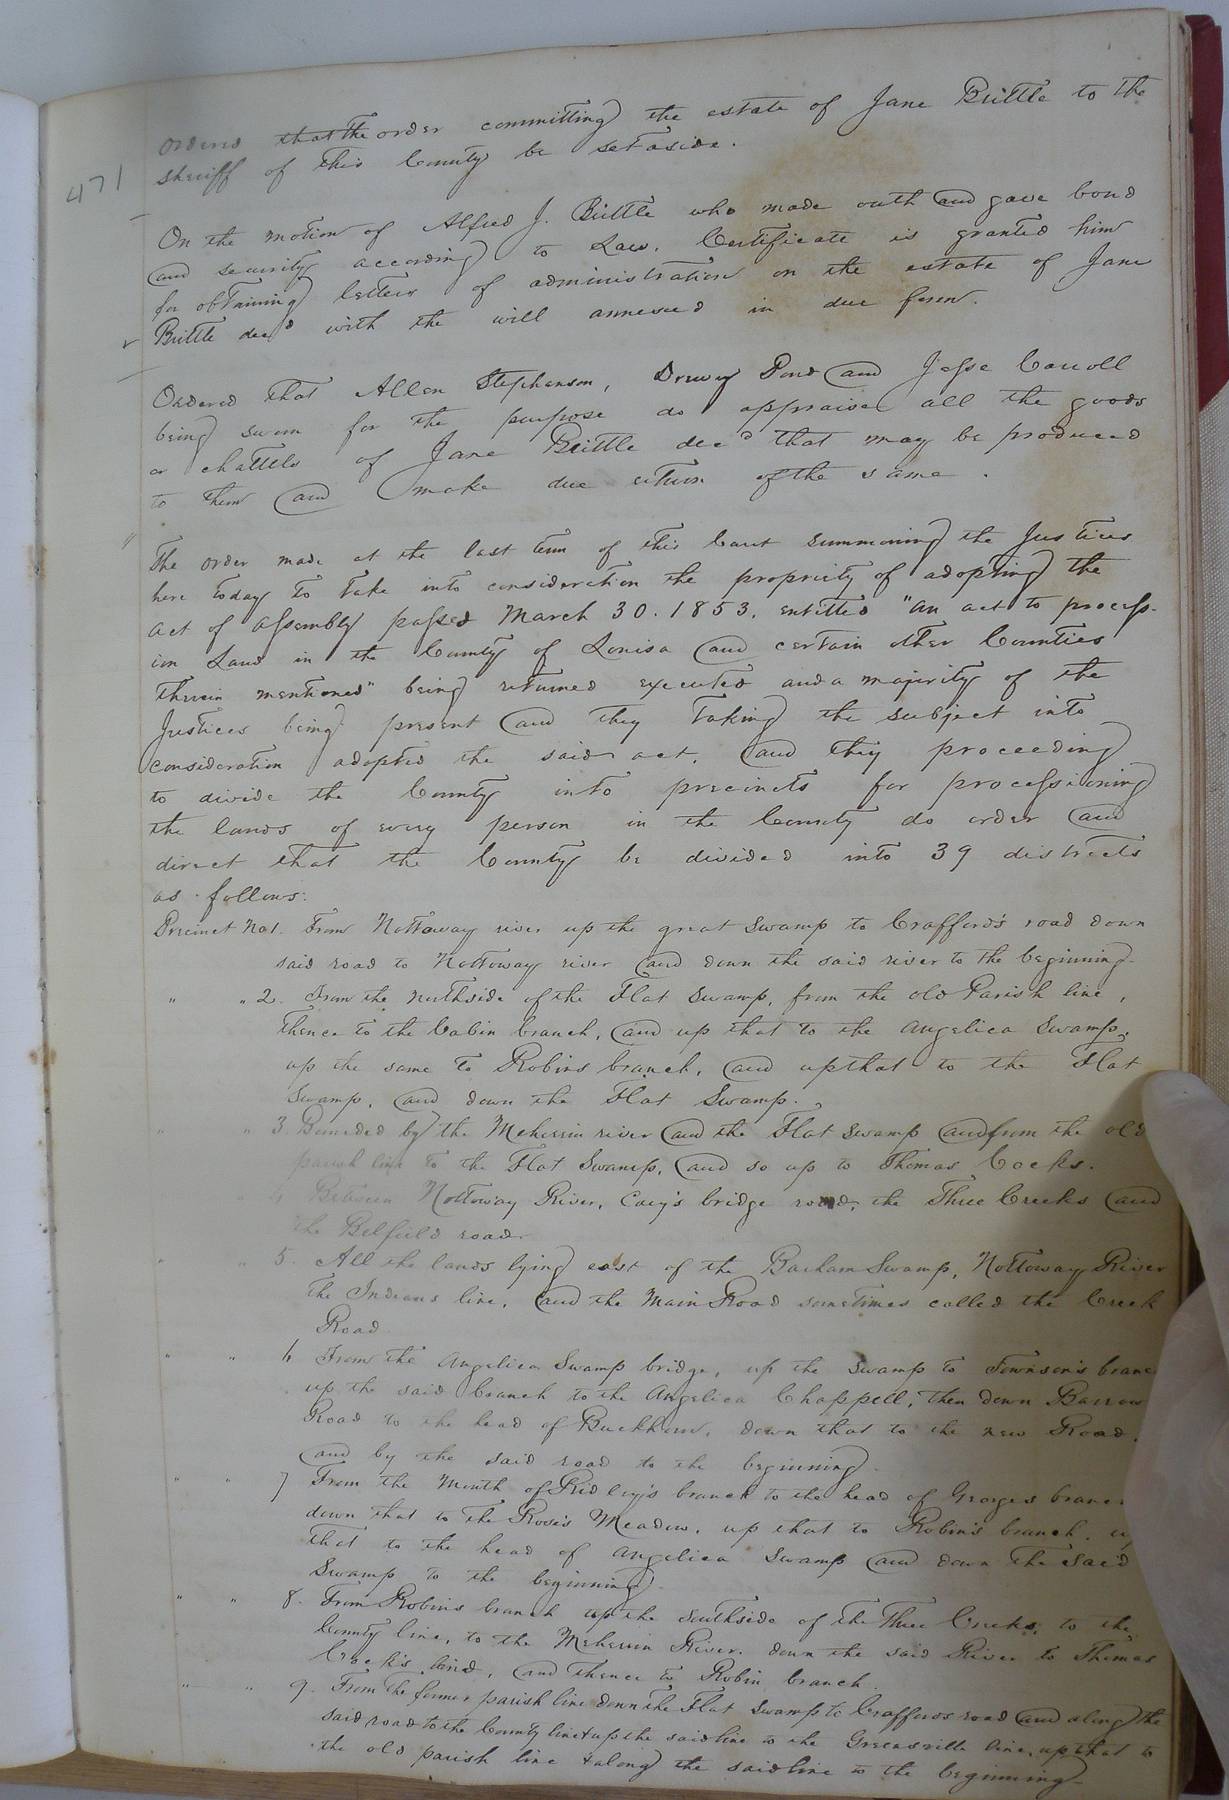 Orders that the order committing the estate of Jane Brittle to the
sheriff of this County be set aside.
471
On the motion of Alfred J. Brittle who made oath and gave bond
and security according to Law. Certificate is granted him
for obtaining letters of administration on the estate of Jane
Brittle decd with the will annexed in due form.
Ordered that Allen Stephenson, Drewry Pond and Jesse Carroll
being sworn for the purpose do appraise all the goods
or chattels of Jane Brittle decd that may be produced
to them and make due return of the same.
The order made at the last term of this Court summoning the Justices
here today to take into consideration the propriety of adopting the
act of assembly passed March 30. 1853. entitled "an act to process-
ion Land in the County of Louisa and certain other Counties
therein mentioned" being returned executed and a majority of the
Justices being present and they taking the subject into
consideration adopted the said act. and they proceeding
to divide the County into precincts for processioning
the lands of every person in the County do order and
direct that the County be divided into 39 districts
as follows:
Precinct No 1. From Nottoway river up the great Swamp to Crafford's road down
said road to Nottoway river and down the said river to the beginning.
" " 2. From the northside of the Flat Swamp, from the old Parish line,
thence to the Cabin branch, and up that to the Angelica Swamp,
up the same to Robins branch, and up that to the Flat
Swamp, and down the Flat Swamp.
" " 3 Bounded by the Meherrin river and the Flat Swamp and from the old
parish line to the Flat Swamp, and so up to Thomas Cocks.
" 4 Between Nottoway River, Cary's bridge road, the Three Creeks and
the Belfield road.
" " 5. All the lands lying east of the Barham Swamp, Nottoway River
the Indians line, and the Main Road sometimes called the Creek
Road
" " 6 From the Angelica Swamp bridge, up the Swamp to Townson's branc
up the said branch to the Angelica Chappell, then down Barrow
Road to the head of Buckhorn, down that to the new Road.
and by the said road to the beginning.
" " 7 From the Mouth of Ridley's branch to the head of Georges branc
down that to the Rose's Meadow, up that to Robin's branch. up
that to the head of Angelica Swamp and down the said
Swamp to the beginning.
" " 8. From Robins branch up the Southside of the Three Creeks, to the
County line, to the Meherrin River. down the said River to Thomas
Cock's land, and thence to Robin branch.
" " 9. From the former parish line down the Flat Swamp to Craffords road and along the
said road to the County line & up the said line to the Greensville line, up that to
the old parish line & along the said line to the beginning.